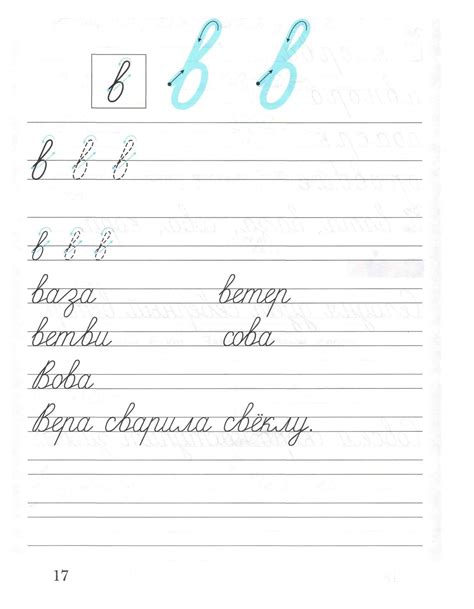 в в в
в в в
в в в
ваза ветер
ветви сова
Вова
Вера сварила свёклу.
17